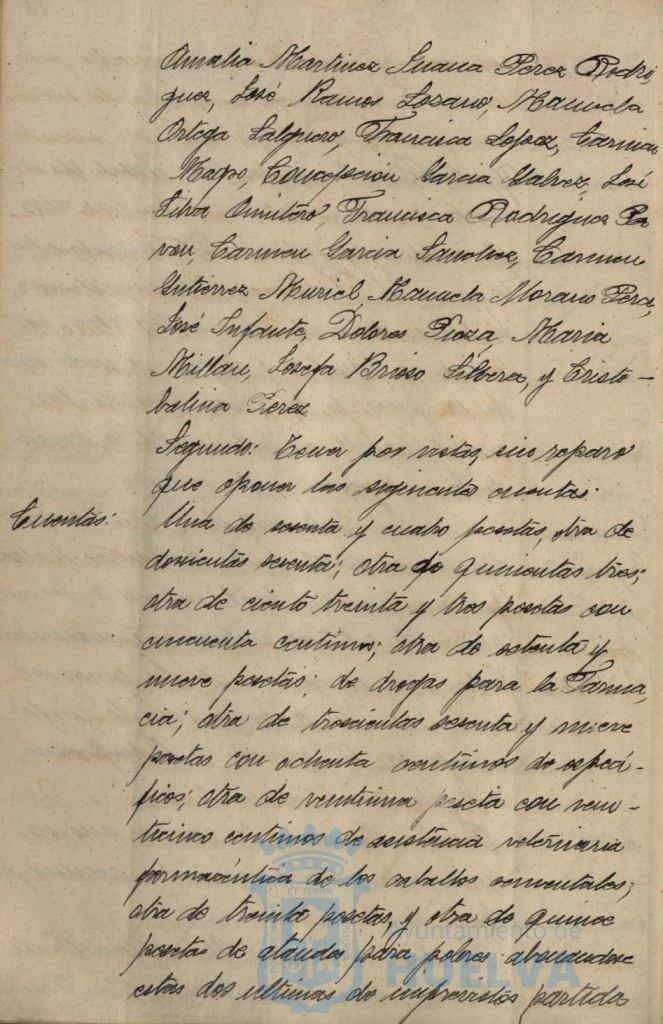 Amalia Martinez Juana Perez Rodri,
guez, José Ramos Lozano, Manuela
Ortega Salguero, Francisca Lopez, Carmen
Mayo, Concepción Garcia Galvez, José
Silva Francisca Rodriguez Pa
von, Carmen Garcia Sanchez, Carmen
Gutierrez Muriel, Manuela Morano Pera,
José Infante, Dolores Maria
Millan, Josefa Brioso Silvera, y Cristo-
balina Perez
Segundo: Tener por vistas, sin reparo
que oponer las siguientes cuentas.
Cuentas:
Una de sesenta y cuatro pesetas, otra de
doscientas sesenta; otra de quinientas tres;
otra de ciento treinta y tres pesetas con
cincuenta centimos; otra de setenta y
nueve pesetas; de drogas para la Farma,
cia; otra de trescientas sesenta y nueve
pesetas con ochenta centimos de especí-
ficos; otra de veintiuna peseta con vein-
ticinco centimos de asistencia veterinaria
farmacéutica de los caballos sementales;
otra de treinta pesetas, y otra de quince
pesetas de atauda para pobres abonandose
estas dos ultimas de imprevistos partida
Ayuntamiento de
HUELVA